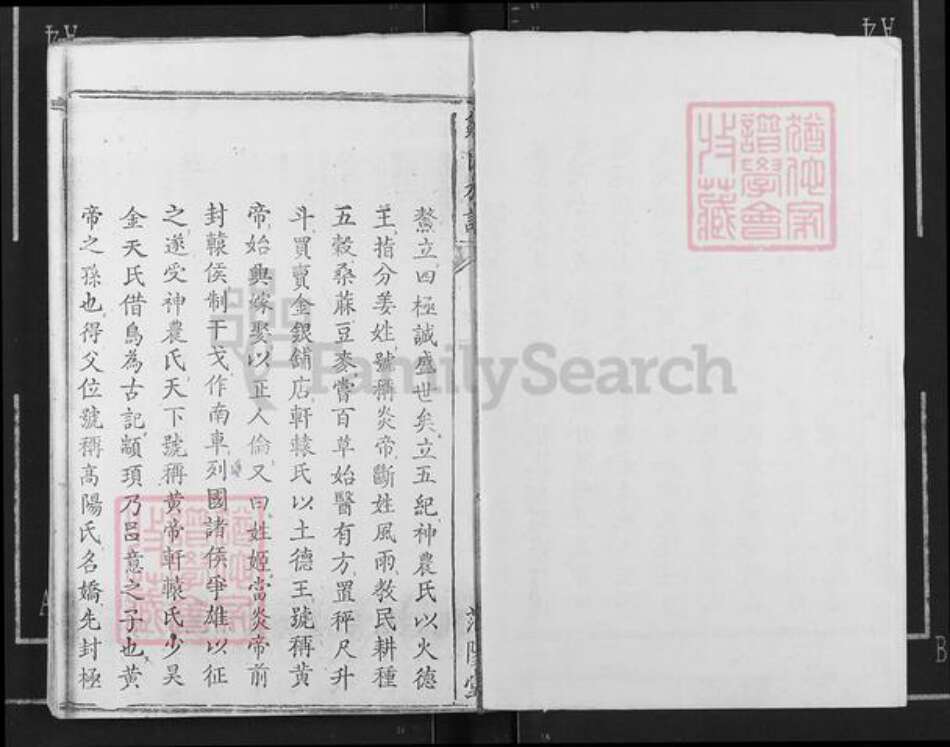 鰲立四極誠盛世矣立五紀神農氏以火德
王指分姜姓號稱炎帝斷姓風雨教民耕種
五穀桑蔴豆麥嘗百草始醫有方置秤尺升
斗買賣金銀舖店軒轅氏以土德王號稱黃
帝始興嫁娶以正人倫又曰姓姬當炎帝前
封轅侯制干戈作南車列國諸侯爭雄以征
之遂受神農氏天下號稱黃帝軒轅氏少昊
金天氏借鳥為古記顓頊乃昌意之子也黃
帝之孫也得父位號稱高陽氏名嬌先封極
譜學會
收藏
FamilySearch